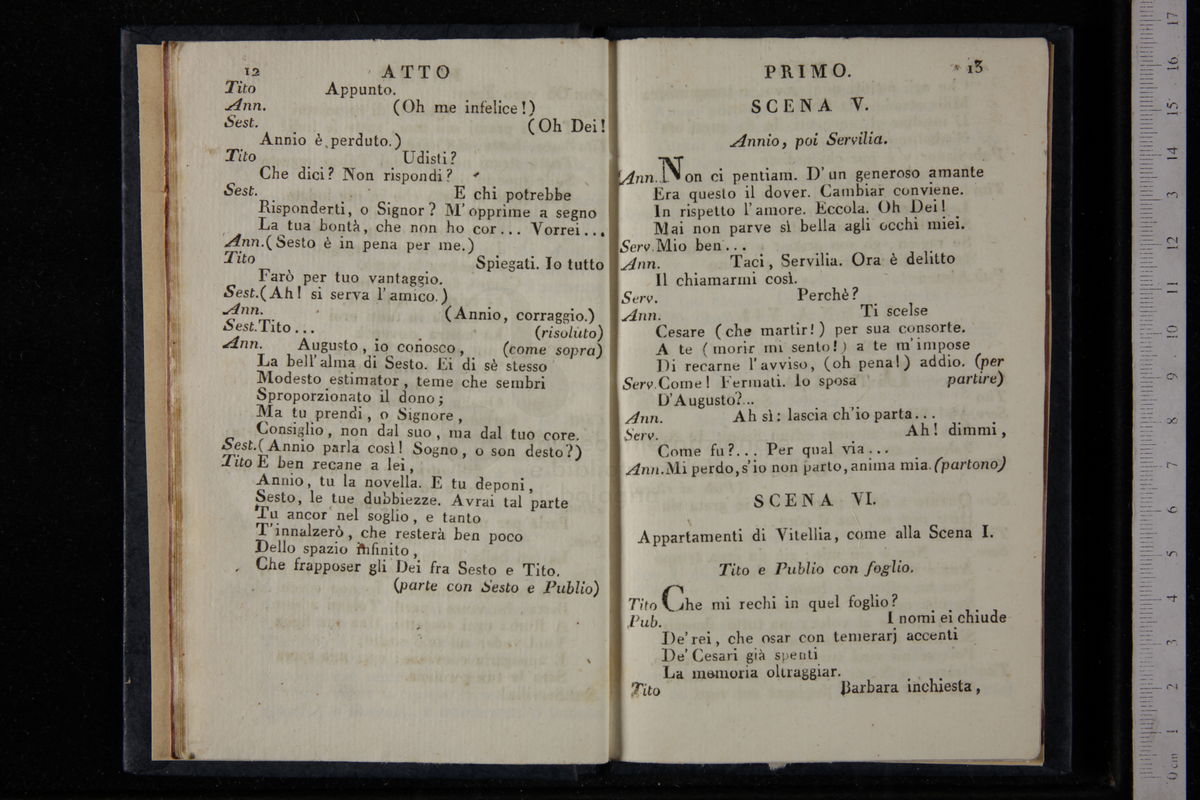 12 ATTO
Tito Appunto.
Ann. (Oh me infelice!)
Sest. (Oh Dei!
Annio è perduto.)
Tito Udisti?
Che dici? Non rispondi?
Sest. E chi potrebbe
Risponderti, o Signor? M'opprime a segno
La tua bontà, che non ho cor... Vorrei...
Ann.(Sesto è in pena per me.)
Tito Spiegati. Io tutto
Farò per tuo vantaggio.
Sest.(Ah! si serva l'amico.)
Ann. (Annio, corraggio.)
Sest.Tito... (risoluto)
Ann. Augusto, io conosco, (come sopra)
La bell'alma di Sesto. Ei di sè stesso
Modesto estimator, teme che sembri
Sproporzionato il dono;
Ma tu prendi, o Signore,
Consiglio, non dal suo, ma dal tuo core.
Sest.(Annio parla così! Sogno, o son desto?)
Tito E ben recane a lei,
Annio, tu la novella. E tu deponi,
Sesto, le tue dubbiezze. Avrai tal parte
Tu ancor nel soglio, e tanto
T'innalzerò, che resterà ben poco
Dello spazio infinito,
Che frapposer gli Dei fra Sesto e Tito.
(parte con Sesto e Publio)
PRIMO. 13
SCENA V.
Annio, poi Servilia.
Ann.Non ci pentiam. D'un generoso amante
Era questo il dover. Cambiar conviene.
In rispetto l'amore. Eccola. Oh Dei!
Mai non parve sì bella agli occhi miei.
Serv.Mio ben...
Ann. Taci, Servilia. Ora è delitto
Il chiamarmi così.
Serv. Perchè?
Ann. Ti scelse
Cesare (che martir!) per sua consorte.
A te (morir mi sento!) a te m'impose
Di recarne l'avviso, (oh pena!) addio. (per
Serv.Come! Fermati. Io sposa partire)
D'Augusto?...
Ann. Ah sì: lascia ch'io parta...
Serv. Ah! dimmi,
Come fu?... Per qual via...
Ann.Mi perdo, s'io non parto, anima mia.(partono)
SCENA VI.
Appartamenti di Vitellia, come alla Scena I.
Tito e Publio con foglio.
Tito Che mi rechi in quel foglio?
Pub. I nomi ei chiude
De'rei, che osar con temerarj accenti
De'Cesari già spenti
La memoria oltraggiar.
Tito Barbara inchiesta,
17
16
15
14
13
12
11
10
9
8
7
6
5
4
3
2
1
0 cm